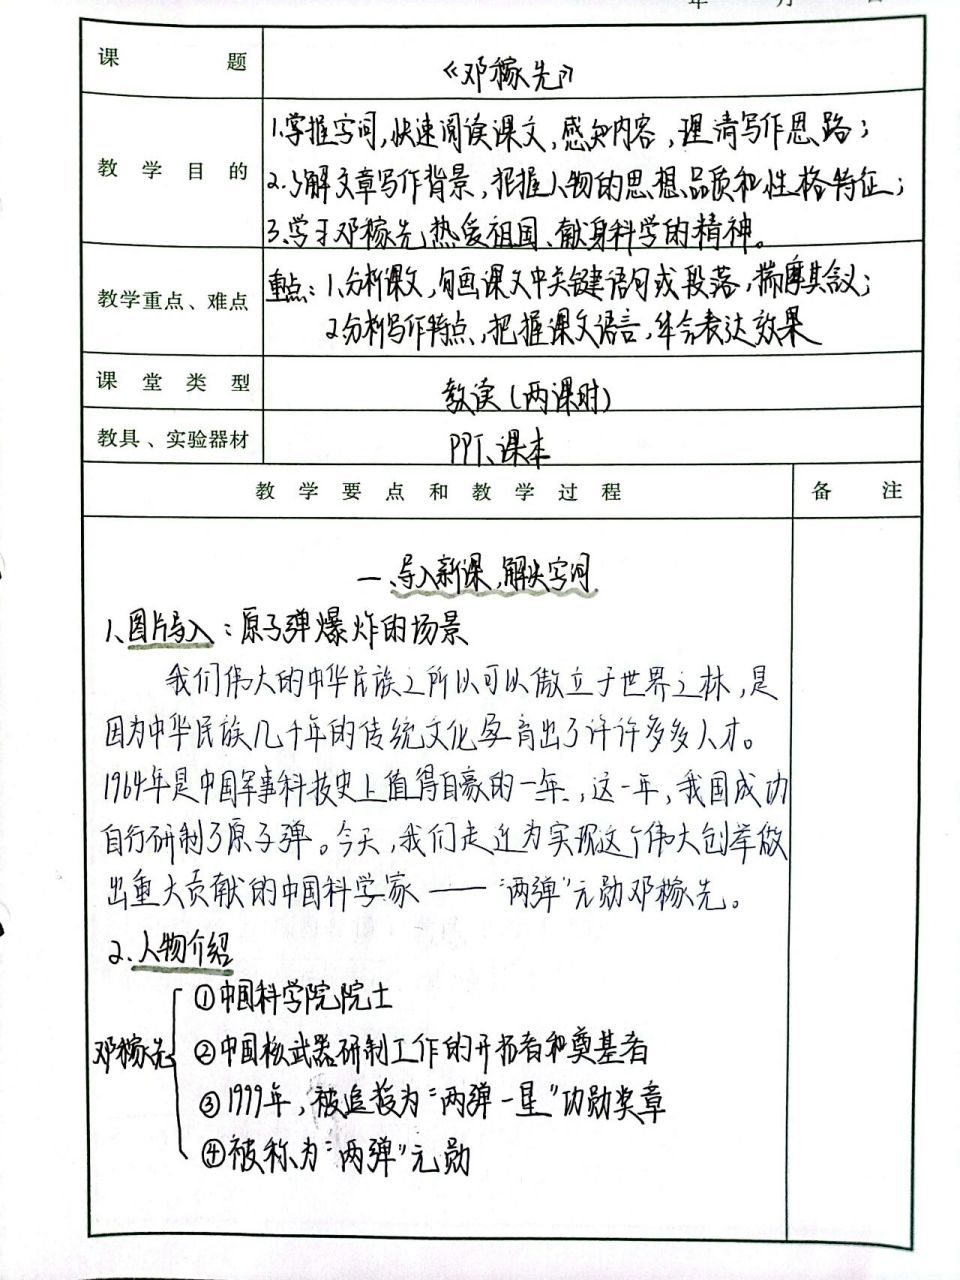 年 月 日
课题 《邓稼先》
1.掌握字词,快速阅读课文,感知内容,理清写作思路;
教学目的 2.了解文章写作背景,把握人物的思想品质和性格特征;
3.学习邓稼先热爱祖国、献身科学的精神。
教学重点、难点 重点:1.分析课文,勾画课文中关键语句或段落,揣摩其含义;
2.分析写作特点,把握课文语言,体会表达效果
课堂类型 教读(两课时)
教具、实验器材 PPT、课本
教学要点和教学过程 备注
一、导入新课,解决字词
1、图片导入:原子弹爆炸的场景
我们伟大的中华民族之所以可以傲立于世界之林,是
因为中华民族几千年的传统文化孕育出了许许多多人才。
1964年是中国军事科技史上值得自豪的一年,这一年,我国成功
自行研制了原子弹。今天,我们走近为实现这个伟大创举做
出重大贡献的中国科学家——“两弹”元勋邓稼先。
2、人物介绍
①中国科学院院士
邓稼先 ②中国核武器研制工作的开拓者和奠基者
③1999年,被追授为“两弹一星”功勋奖章
④被称为“两弹”元勋